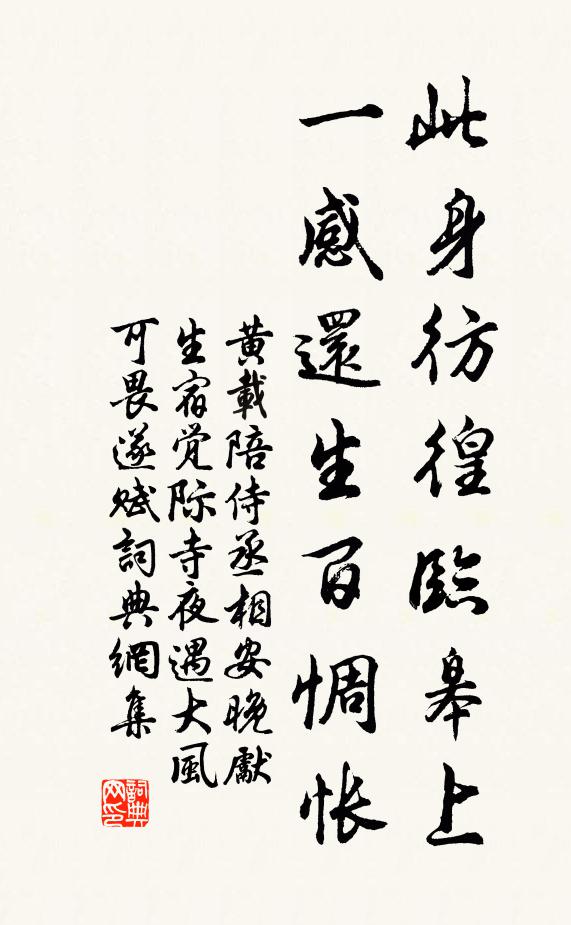 此身彷徨臨皋上
一感還生百惆悵
黃載陪侍丞相安晚獻
生宿觉际寺夜遇大風
可畏遂赋詞典網集
詞典
网印